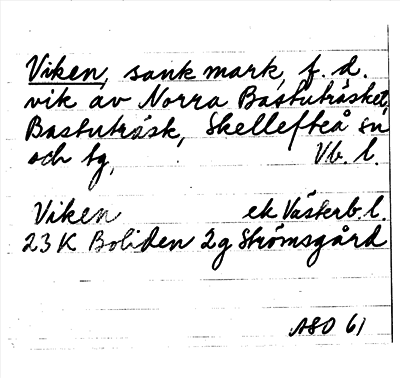 Viken, sank mark, f. d.
vik av Norra Bastuträsket,
Bastuträsk, Skellefteå sn
och tg, Vb. l.
Viken ek Västerb. l.
23 K Boliden 2g Strömsgård
ASO 61